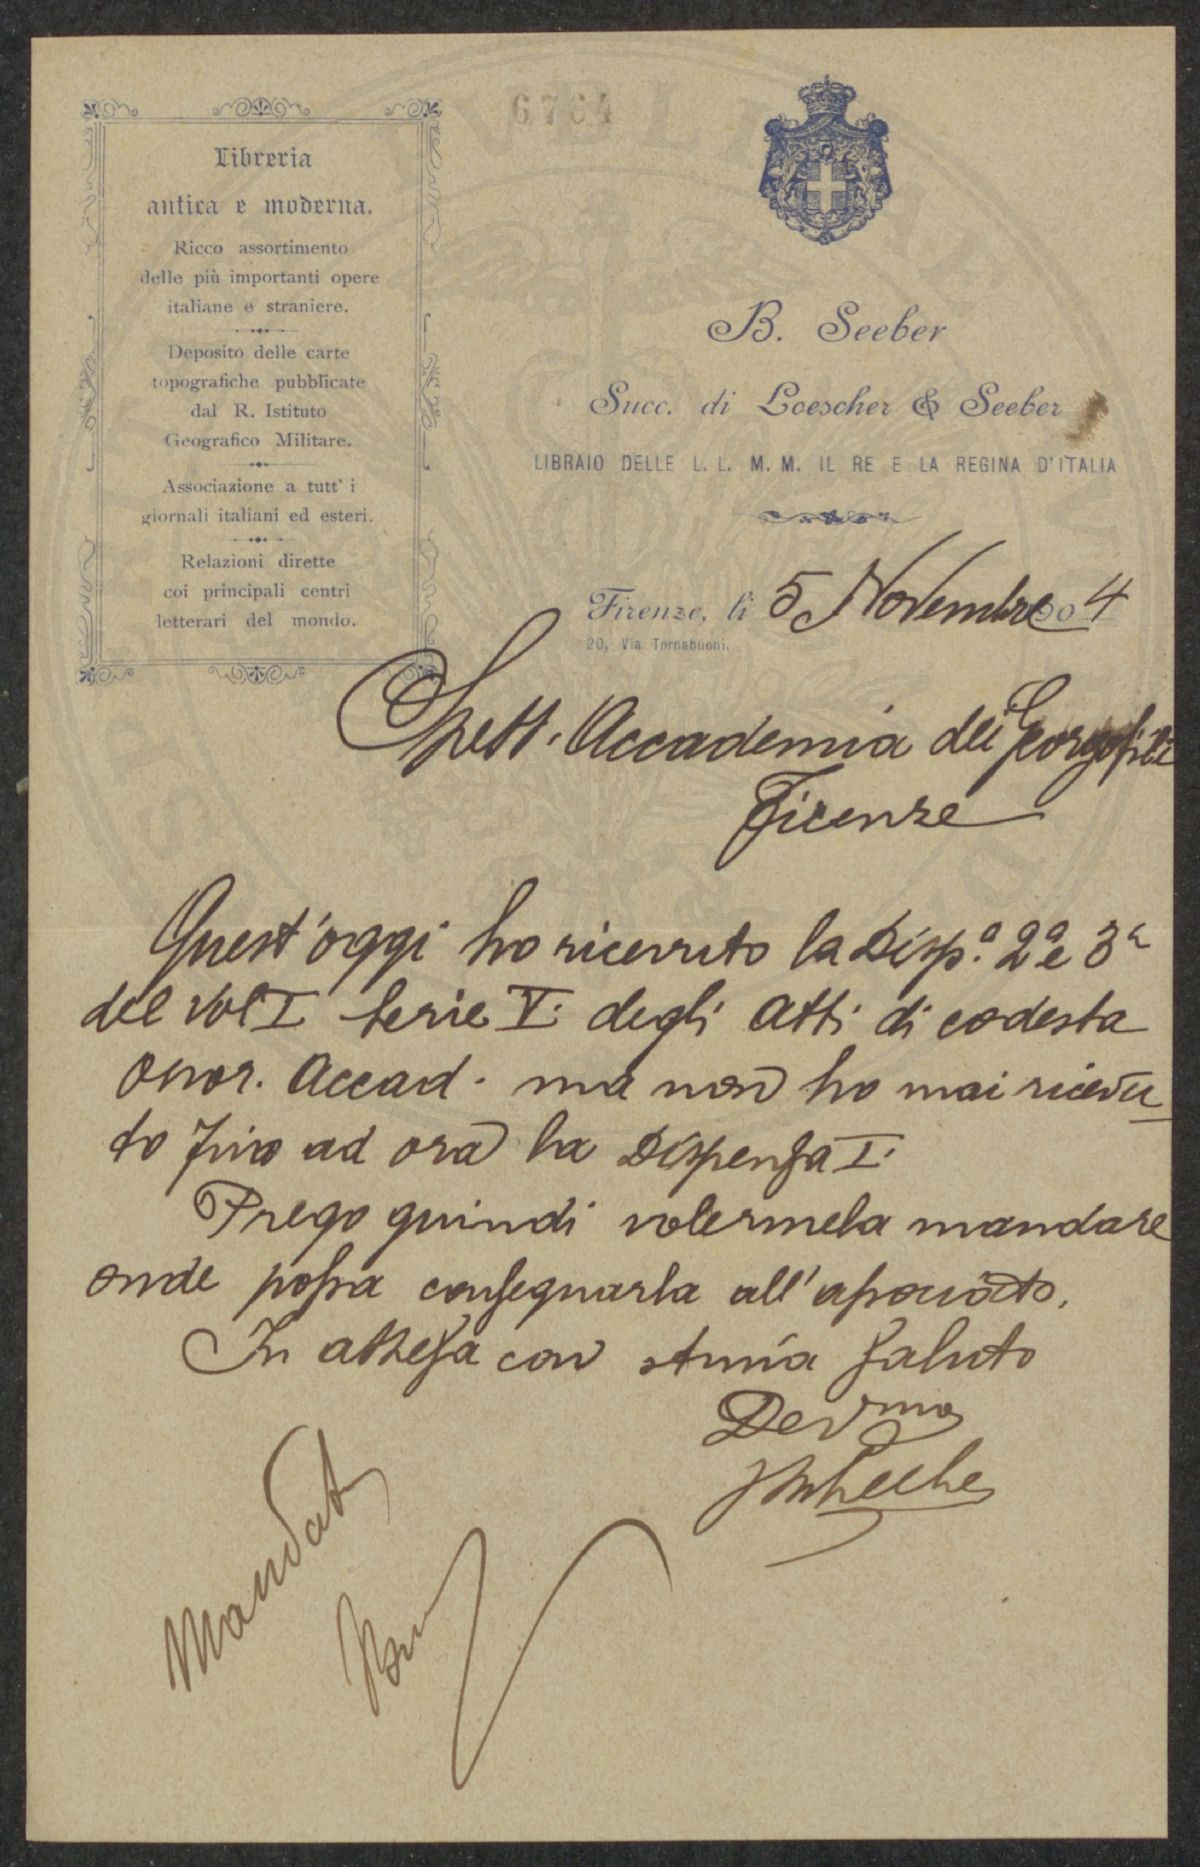 6764
Libreria
antica e moderna.
Ricco assortimento
delle più importanti opere
italiane e straniere.
Deposito delle carte
topografiche pubblicate
dal R. Istituto
Geografico Militare.
Associazione a tutt' i
giornali italiani ed esteri.
Relazioni dirette
coi principali centri
letterari del mondo.
B. Seeber
Succ. di Loescher & Seeber
LIBRAIO DELLE L. L. M. M. IL RE E LA REGINA D'ITALIA
Firenze, li 5 Novembre 904
20, Via Tornabuoni.
Spett. Accademia dei Georgofili
Firenze
Quest'oggi ho ricevuto la Disp.a 2a e 3a
del Vol I Serie V. degli Atti di codesta
Onor. Accad. ma non ho mai ricevu
to fino ad ora la Dispensa I.
Prego quindi volermela mandare
onde possa consegnarla all'associato.
In attesa con stima saluto
Devmo
Mandat